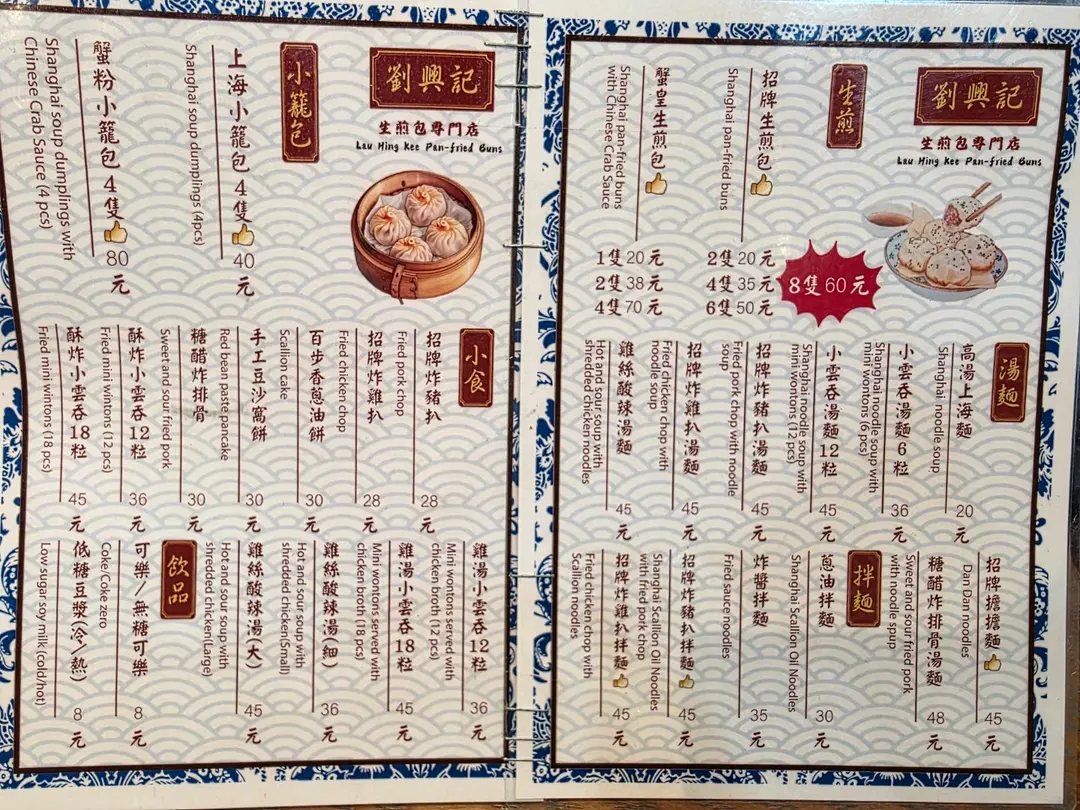 劉興記
生煎包專門店
Lau Hing Kee Pan-fried Buns
生煎
招牌生煎包👍
Shanghai pan-fried buns
2隻20元
4隻35元
6隻50元
8隻60元
蟹皇生煎包👍
Shanghai pan-fried buns
with Chinese Crab Sauce
1隻20元
2隻38元
4隻70元
湯麵
高湯上海麵
Shanghai noodle soup
20元
小雲吞湯麵6粒
Shanghai noodle soup with
mini wontons (6 pcs)
36元
小雲吞湯麵12粒
Shanghai noodle soup with
mini wontons (12 pcs)
45元
招牌炸豬扒湯麵
Fried pork chop with noodle
soup
45元
招牌炸雞扒湯麵
Fried chicken chop with
noodle soup
45元
雞絲酸辣湯麵
Hot and sour soup with
shredded chicken noodles
45元
招牌擔擔麵👍
Dan Dan noodles
45元
糖醋炸排骨湯麵
Sweet and sour fried pork
with noodle spup
48元
拌麵
蔥油拌麵
Shanghai Scallion Oil Noodles
30元
炸醬拌麵
Fried sauce noodles
35元
招牌炸豬扒拌麵👍
Shanghai Scallion Oil Noodles
with fried pork chop
45元
招牌炸雞扒拌麵👍
Fried chicken chop with
Scallion noodles
45元
劉興記
生煎包專門店
Lau Hing Kee Pan-fried Buns
小籠包
上海小籠包4隻👍
Shanghai soup dumplings (4pcs)
40元
蟹粉小籠包4隻👍
Shanghai soup dumplings with
Chinese Crab Sauce (4 pcs)
80元
小食
招牌炸豬扒
Fried pork chop
28元
招牌炸雞扒
Fried chicken chop
28元
百步香蔥油餅
Scallion cake
30元
手工豆沙窩餅
Red bean paste pancake
30元
糖醋炸排骨
Sweet and sour fried pork
30元
酥炸小雲吞12粒
Fried mini wintons (12 pcs)
36元
酥炸小雲吞18粒
Fried mini wintons (18 pcs)
45元
雞湯小雲吞12粒
Mini wontons served with
chicken broth (12 pcs)
36元
雞湯小雲吞18粒
Mini wontons served with
chicken broth (18 pcs)
45元
雞絲酸辣湯(細)
Hot and sour soup with
shredded chicken(Small)
36元
雞絲酸辣湯(大)
Hot and sour soup with
shredded chicken(Large)
45元
飲品
可樂/無糖可樂
Coke/Coke zero
8元
低糖豆漿(冷/熱)
Low sugar soy milk (cold/hot)
8元